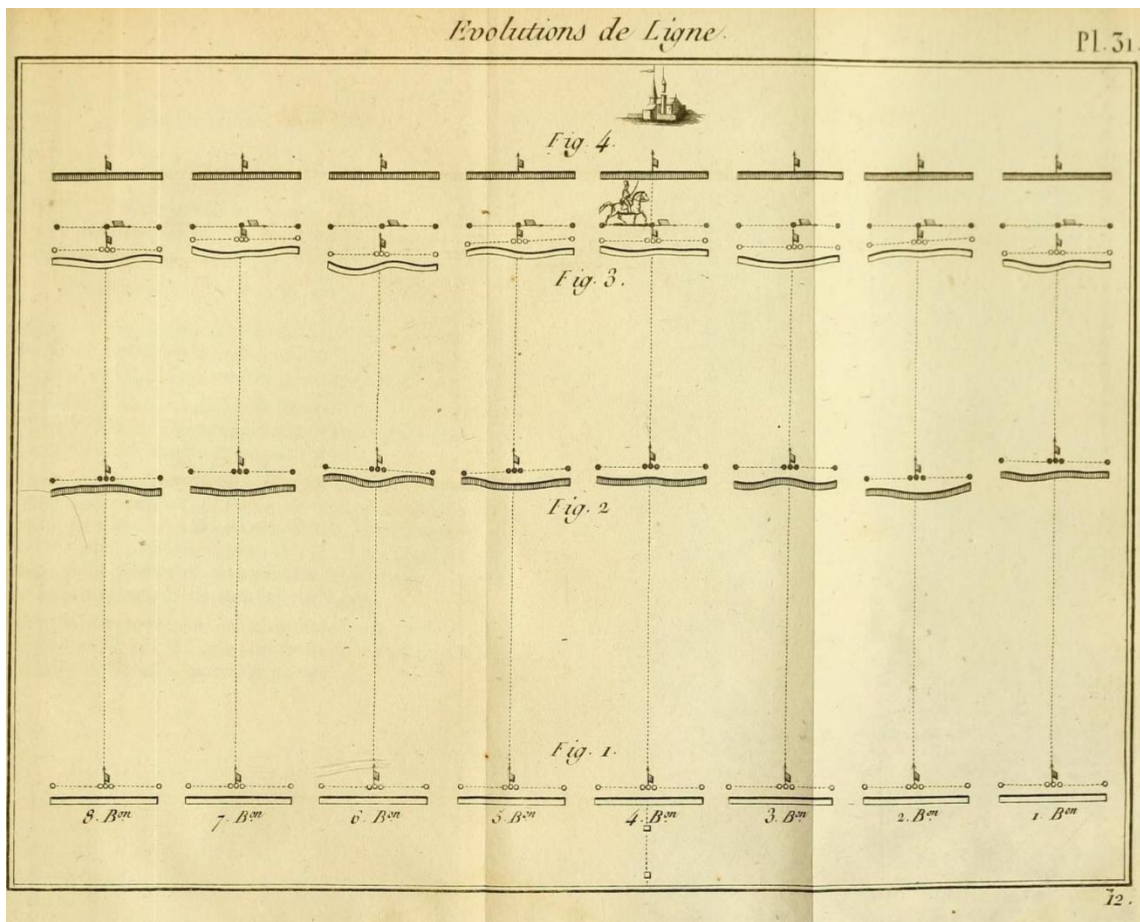 Evolutions de Ligne.
Pl. 31.
Fig. 4.
Fig. 3.
Fig. 2
Fig. 1.
8. Bon 7. Bon 6. Bon 5. Bon 4. Bon 3. Bon 2. Bon 1. Bon
12.